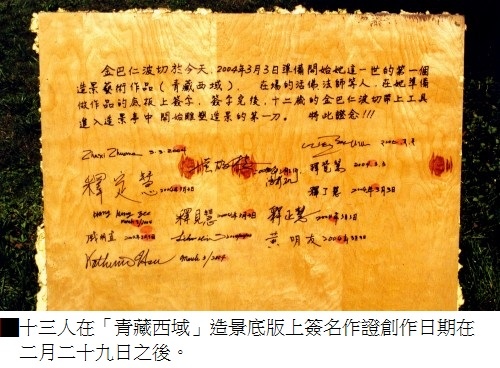 金巴仁波切於今天,2004年3月3日準備開始她這一世的第一個
造景藝術作品(青藏西域), 在場的活佛法師等人,在她準備
做作品的底板上簽字, 簽字完後,十二歲的金巴仁波切帶上工具
進入造景亭中開始雕塑造景的第一刀。 將此證念!!!
Zhaxi Zhuoma 3-3-2004
釋覺慧 2004.3.3
釋定慧 2004年3月3日
釋了慧 2004年3月3日
March 3/2004
釋見慧 2004年3月3日
釋正慧 2004年3月3日
2004年3月3日
黃明友 2004年3月3日
Katherine Hsu March 3/2004
十三人在「青藏西域」造景底版上簽名作證創作日期在
二月二十九日之後。